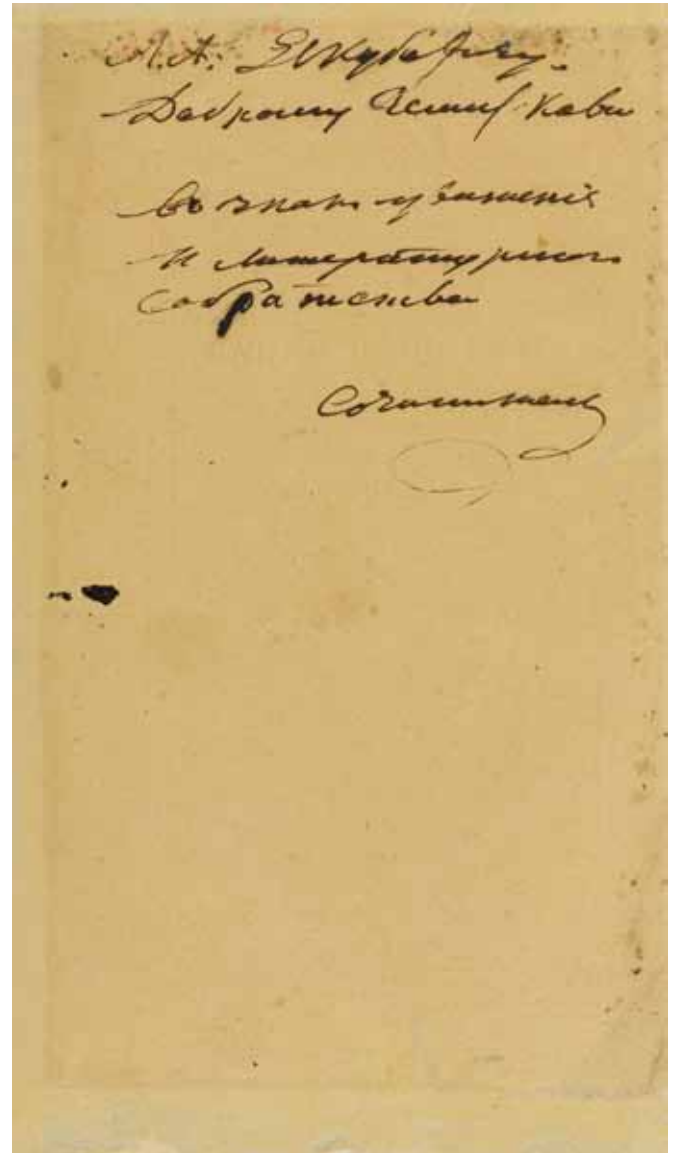 Л.А. Якубовичу.
Доброму
Въ знакъ уваженія
и литературнаго
собратства
Сочинитель